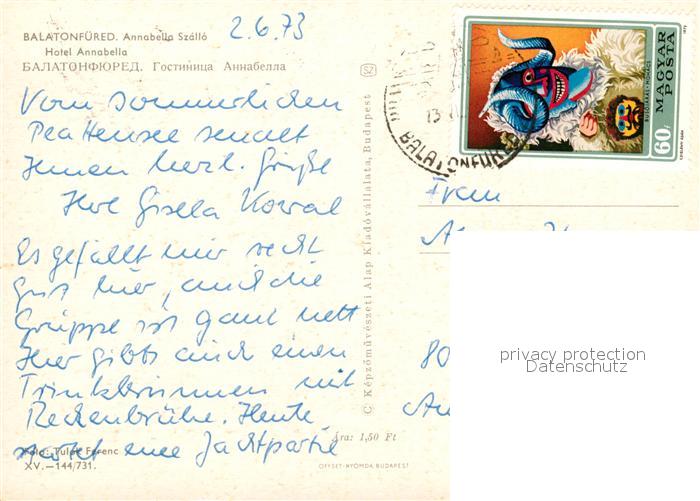 BALATONFÜRED. Annabella Szálló
Hotel Annabella
БАЛАТОНФЮРЕД. Гостиница Аннабелла
2.6.73
Vom sommerlichen
Plattensee sendet
Ihnen herzl. Grüße
Ihre Gisela Kowal
Es gefällt mir recht
gut hier, auch die
Gruppe ist ganz nett
Hier gibts auch einen
Trinkbrunnen mit
Heute
startet eine Jachtpartie
Foto: Tulok Ferenc
XV.—144/731.
Ára: 1,50 Ft
OFFSET-NYOMDA BUDAPEST
SZ
C Képzőművészeti Alap Kiadóvállalata, Budapest
BALATONFÜRED
73
MAGYAR POSTA
BUSÓJÁRÁS · MOHÁCS
60f
Frau
80
privacy protection
Datenschutz